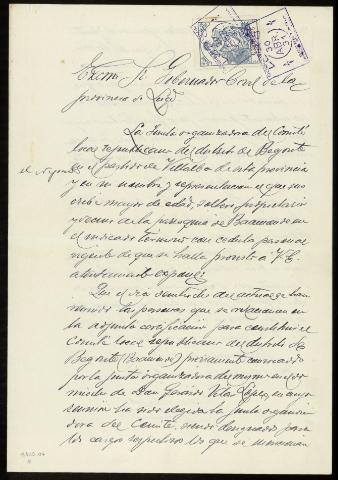 Excmo Sr Gobernador Civil de la
provincia de Lugo
La Junta organizadora del Comité
local republicano del distrito de Begonte
en el partido de Villalba de esta provincia
y en su nombre y representacion el que sus
cribe mayor de edad, soltero, propietario
y vecino de la parroquia de Baamonde en
el indicado término con cedula personal
corriente de que se halla provisto a V.E.
atentamente expone:
Que el dia del actual se han
reunido las personas que se relacionan en
la adjunta certificacion para constituir el
Comité local republicano del distrito de
Begonte (Baamonde) previamente convocados
por la Junta organizadora del mismo en el do
micilio de Don Vila López, en cuya
reunion ha sido elegida la Junta organiza
dora del Comité, siendo designados para
los cargos respectivos los que se mencionan
30
ABR
31